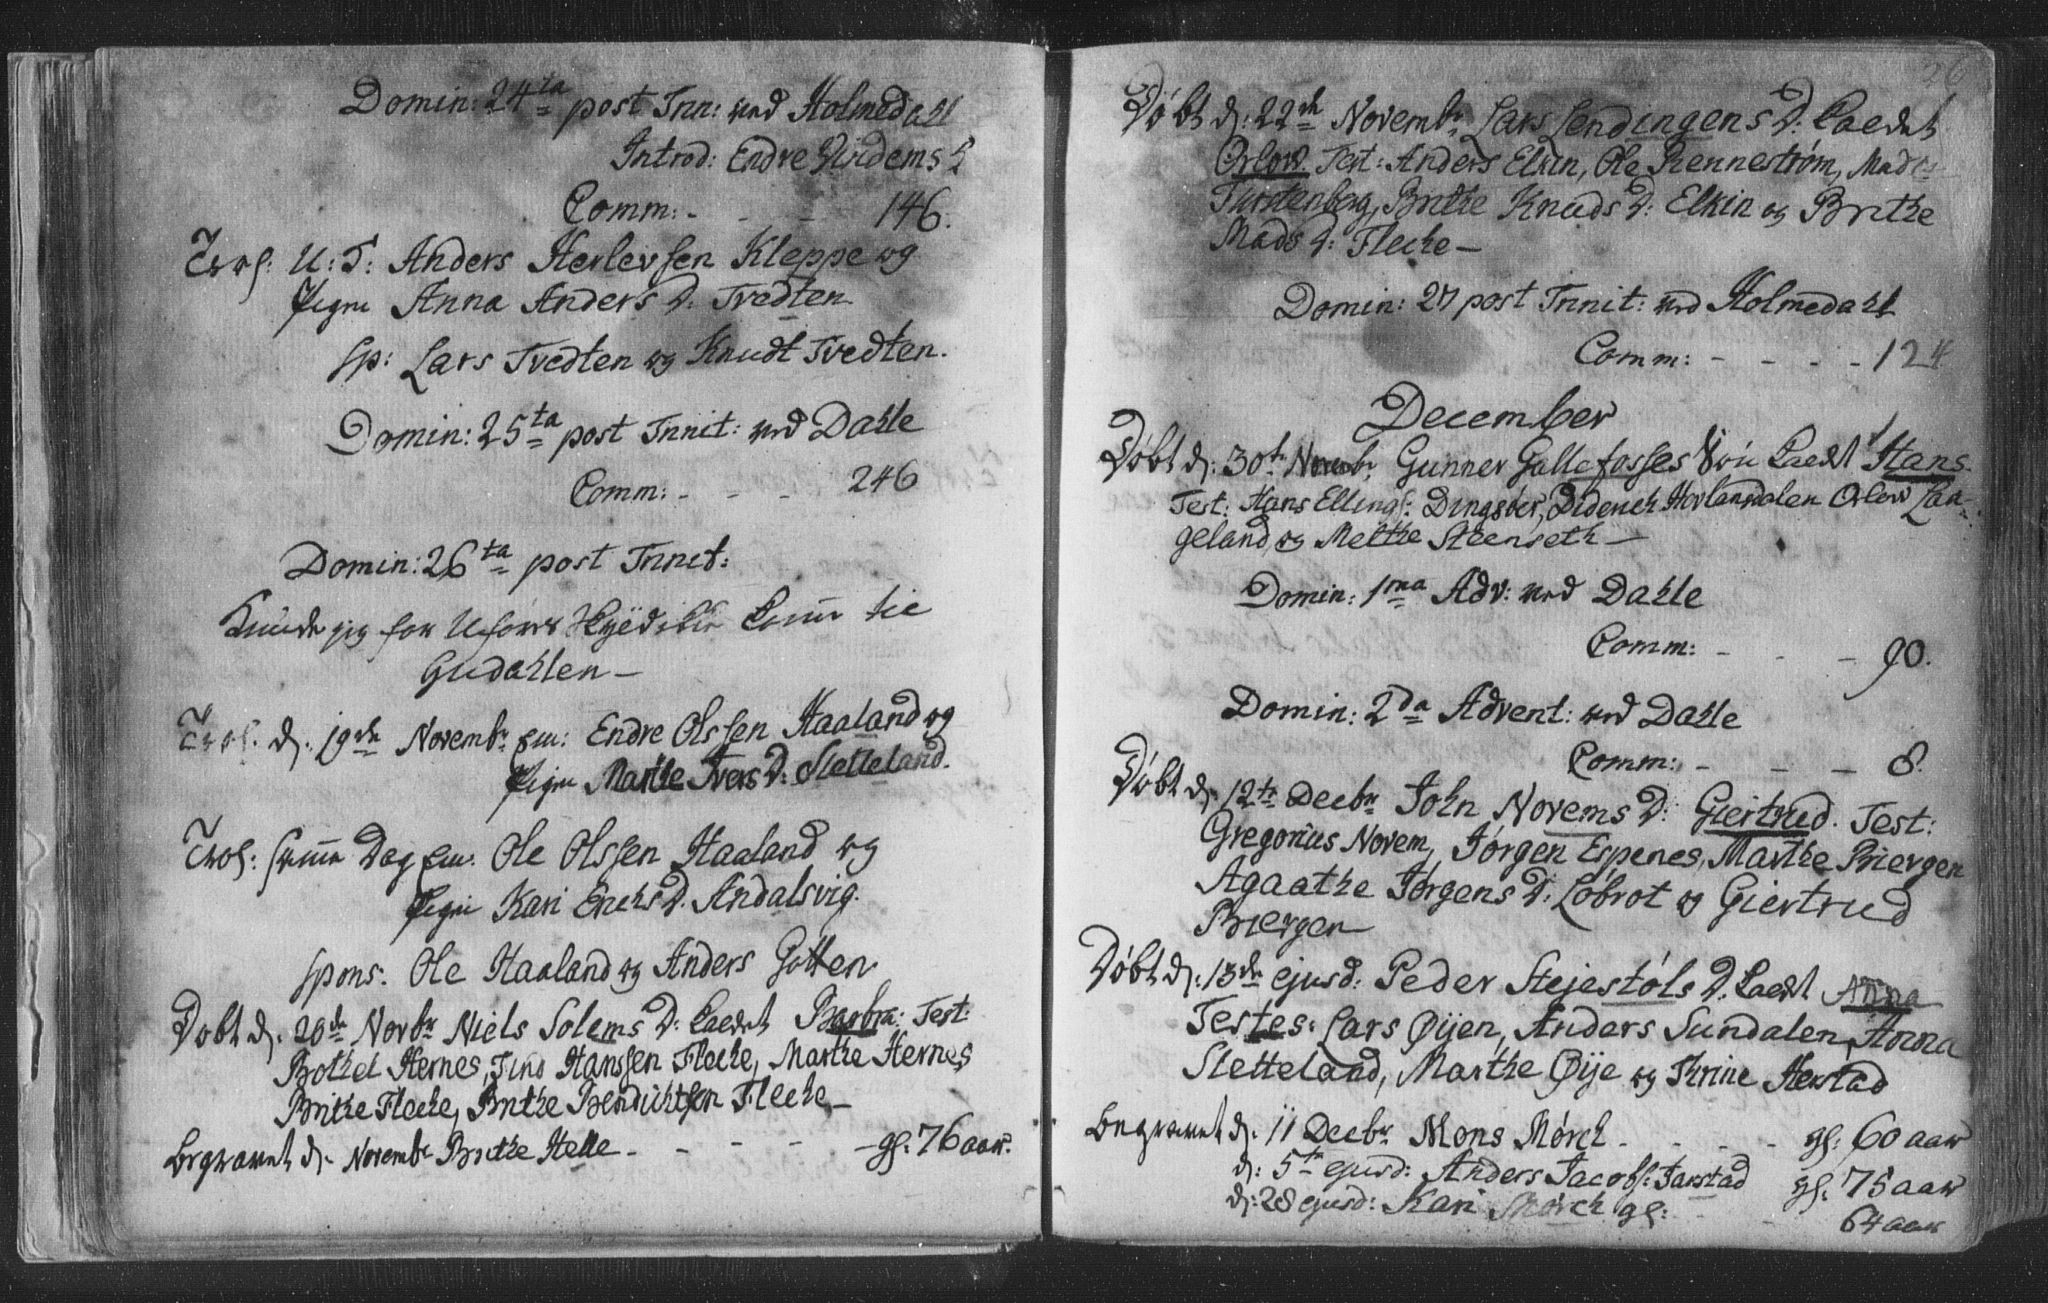 Domin: 24ta post Trin: ved Holmedahl
Introd: Endre Hvidems
Comm: - - - 146.
Trol: U: T: Anders Herlevsen Kleppe og
Pigen Anna Anders D. Tvedten
Sp: Lars Tvedten og Knudt Tvedten.
Domin: 25ta post Trinit: ved Dahle
Comm: - - - 246
Domin: 26ta post Trinit:
Kunde jeg for Uføre icke Komme til
Gudahlen -
Trol: d. 19de Novembr Em: Endre Olssen Haaland og
Pigen Marthe Ivers D: Sletteland.
Trol: samme Dag Em: Ole Olssen Haaland og
Pigen Kari Erichs D. Andalsvig.
Spons: Ole Haaland og Anders Gotten
Døbt d. 20de Novbr Niels Solems D: kaldet Barbra: Test:
Bothel Hernes, Hanssen Fleche, Marthe Hernes
Brithe Fleche, Brithe Bendichtsen Fleche -
Begravet d. Novembr Brithe Helle - - - - gl: 76 aar.
26
Døbt d. 22de Novembr Lars Lendingens D. kaldet
Orlow. Test: Anders Elkin, Ole Rennestrøm, Mad:
Furstenberg, Brithe Knuds D: Elkin og Brithe
Mads D: Fleche -
Domin: 27 post Trinit: ved Holmedahl
Comm: - - - - 124
December
Døbt d: 30te Novembr Gunner Gallefosses Søn kaldt Hans.
Test: Hans Ellings: Dingsøer, Diderich Hovlandsdalen Orlow Lan-
geland, og Melthe Steenseth -
Domin: 1ma Adv: ved Dahle
Comm: - - - 90.
Domin: 2da Advent: ved Dahle
Comm: - - - 8.
Døbt d. 12te Decbr John Novems D: Giertrud. Test:
Gregorius Novem, Jørgen Espenes, Marthe Biergen
Agaathe Jørgens D: Løbrot og Giertrud
Biergen
Døbt d. 13de ejusd: Peder Stejestøls D. kaldt Anna
Testes: Lars Øijen, Anders Sundalen, Anna
Sletteland, Marthe Øije og Thrine Herstad
Begravet d. 11 Decbr Mons Mørch - - - - gl: 60 aar
d: 5te ejusd: Anders Jacobs: Jarstad gl: 75 aar
d: 28 ejusd: Kari Mørch gl: - - 64 aar